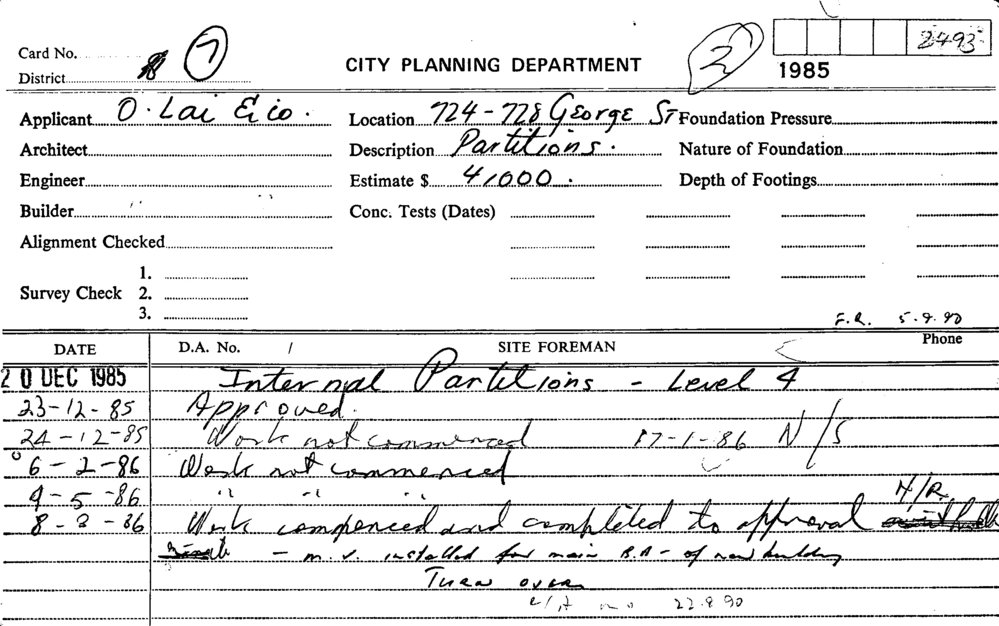 Card No. 7 CITY PLANNING DEPARTMENT 2 2493
District 1985
Applicant O. Lai & Co. Location 724-728 George St Foundation Pressure
Architect Description Partitions. Nature of Foundation
Engineer Estimate $ 41000. Depth of Footings
Builder Conc. Tests (Dates)
Alignment Checked
1.
Survey Check 2.
3.
F.R. 5.9.90
DATE D.A. No. / SITE FOREMAN Phone
20 DEC 1985 Internal Partitions - Level 4
23-12-85 Approved.
24-12-85 Work not commenced 17-1-86 N/S
6-2-86 Work not commenced
9-5-86 " " "
N/R
8-3-86 Work commenced and completed to approval
- m.v. installed for main B.A - of new building
Turn over
22.8.90